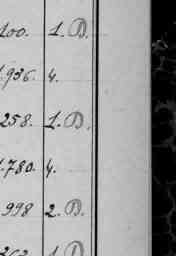 100. 1. D.
.936. 4.
258. 1. D.
.780. 4.
998 2. D.